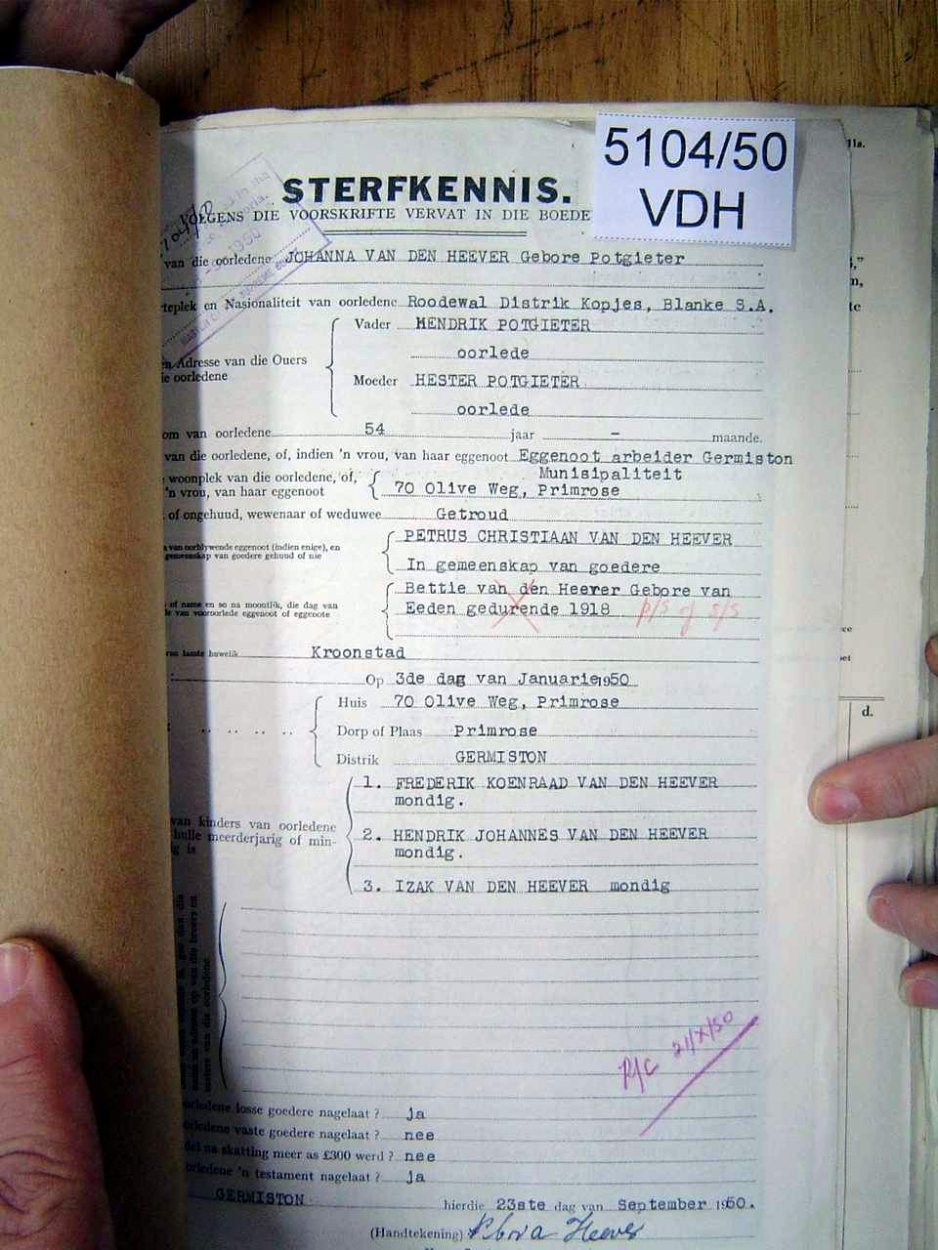 5104/50
VDH
11a.
STERFKENNIS.
VOLGENS DIE VOORSKRIFTE VERVAT IN DIE BOEDE
van die oorledene JOHANNA VAN DEN HEEVER Gebore Potgieter
teplek en Nasionaliteit van oorledene Roodewal Distrik Kopjes, Blanke S.A.
Vader HENDRIK POTGIETER
oorlede
Adresse van die Ouers
oorledene
Moeder HESTER POTGIETER
oorlede
om van oorledene 54 jaar - maande.
van die oorledene, of, indien 'n vrou, van haar eggenoot Eggenoot arbeider Germiston
Munisipaliteit
woonplek van die oorledene, of,
'n vrou, van haar eggenoot 70 Olive Weg, Primrose
of ongehuud, wewenaar of weduwee Getroud
van oorblywende eggenoot (indien enige), en
gemeenskap van goedere gehuud of nie
PETRUS CHRISTIAAN VAN DEN HEEVER
In gemeenskap van goedere
of name en so na moontlik, die dag van
van vooroorlede eggenoot of eggenote
Bettie van den Heerer Gebore van
Eeden gedurende 1918 p/s of s/s
laaste huwelik Kroonstad
Op 3de dag van Januarie 1950
Huis 70 Olive Weg, Primrose
Dorp of Plaas Primrose
Distrik GERMISTON
d.
1. FREDERIK KOENRAAD VAN DEN HEEVER
mondig.
van kinders van oorledene
hulle meerderjarig of min-
g is
2. HENDRIK JOHANNES VAN DEN HEEVER
mondig.
3. IZAK VAN DEN HEEVER mondig
R/C 21/X/50
orledene losse goedere nagelaat? ja
orledene vaste goedere nagelaat? nee
del na skatting meer as £300 werd? nee
orledene 'n testament nagelaat? ja
GERMISTON hierdie 23ste dag van September 1950.
(Handtekening)